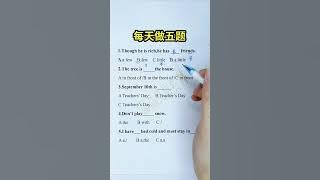 每天做五题
1.Though he is rich,he has ___ friends.
A a few B few C little D a little
2.The tree is ___ the house.
A in front of B in the front of C in front
3.September 10th is ___
A Teachers' Day B Teacher's Day
C Teachers Day
4.Don't play ___ snow.
A the B with C /
5.I have ___ bad cold and must stay in ___